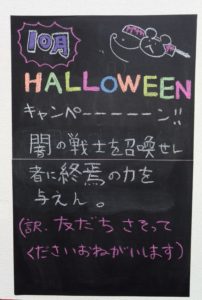 10月
HALLOWEEN
キャンペーーーーーン!!
闇の戦士を召喚せし
者に終焉の力を
与えん。
(訳.友だち さそって
くださいおねがいします)